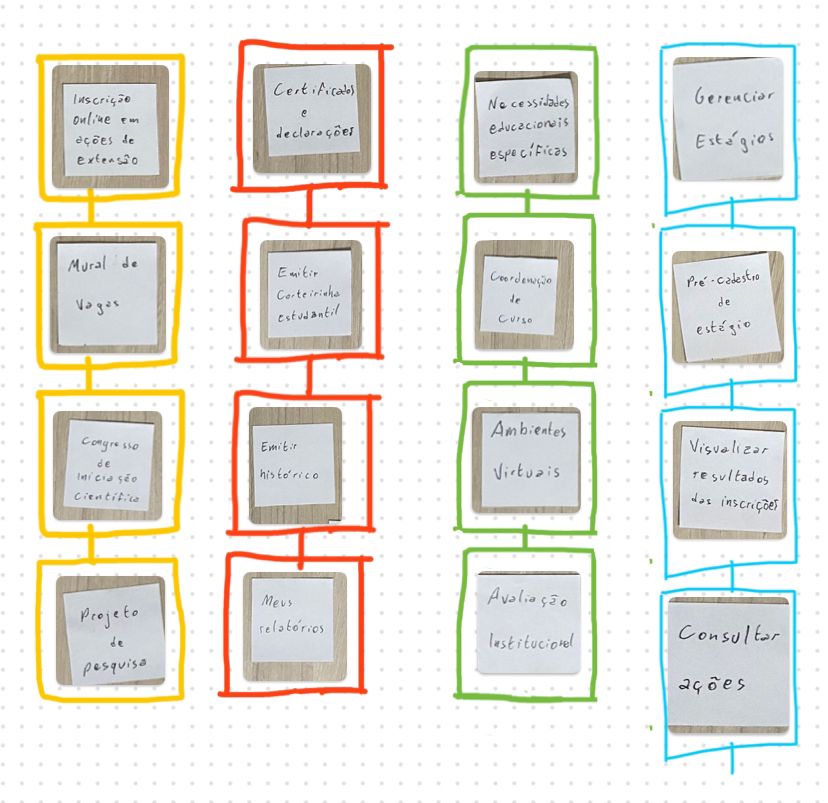 Inscrição
online em
ações de
extensão
Mural de
Vagas
Congresso
de
Iniciação
Científica
Projeto
de
pesquisa
Certificados
e
declarações
Emitir
Carteirinha
estudantil
Emitir
histórico
Meus
relatórios
Necessidades
educacionais
específicas
Coordenação
de
Curso
Ambientes
Virtuais
Avaliação
Institucional
Gerenciar
Estágios
Pré-cadastro
de
estágio
Visualizar
resultados
das inscrições
Consultar
ações